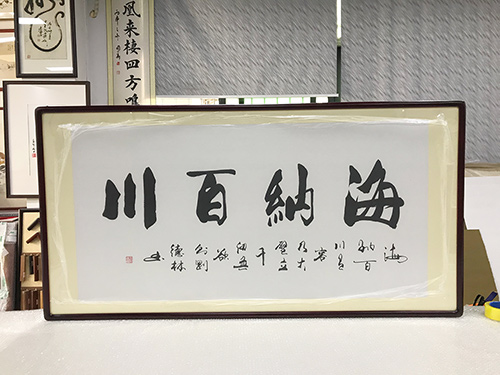 海納百川
海納百川有容乃大壁立千仞無欲則剛
德林書
凰來棲四方